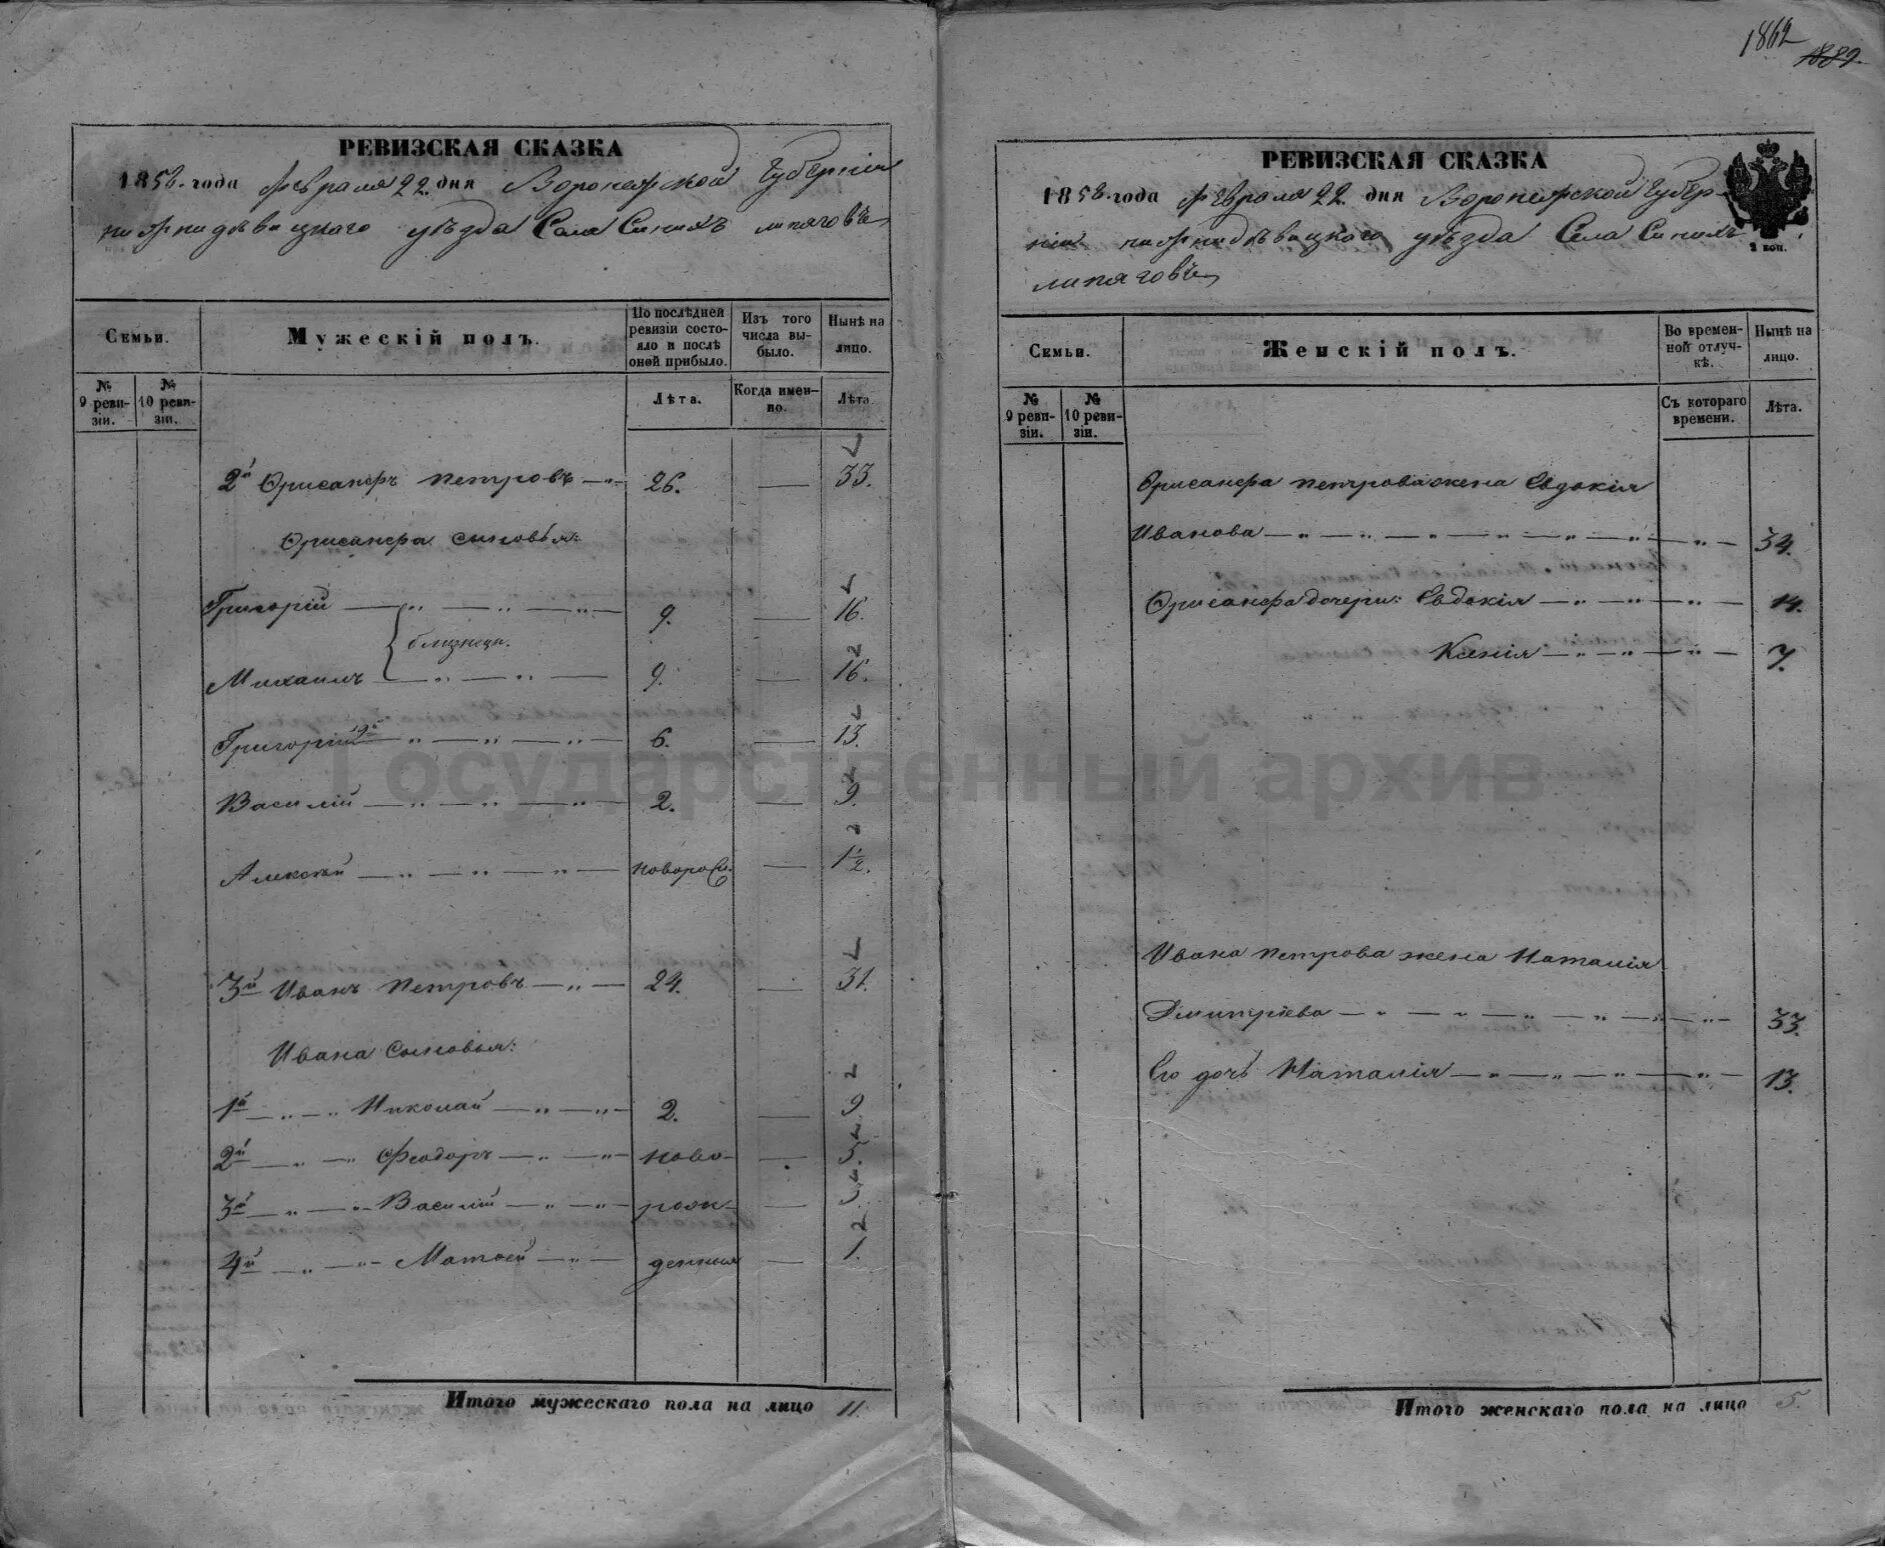 1862
1889.
РЕВИЗСКАЯ СКАЗКА
1858. года февраля 22. дня Воронежской Губерніи
нижнидѣвицкаго уѣзда Села Синихъ липяговъ
Семьи.
Мужескій полъ.
По послѣдней ревизіи состояло и послѣ оной прибыло.
Изъ того числа выбыло.
Нынѣ на лицо.
№ 9 ревизіи.
№ 10 ревизіи.
Лѣта.
Когда именно.
Лѣта
2й Хрисанфъ Петровъ — 26. — 33.
Хрисанфа сыновья:
Григорій — 9. — 16.
близнецы.
Михаилъ — 9. — 16.
Григорій 2й — 6. — 13.
Василій — 2. — 9.
Алексѣй — новорож. — 1½.
3й Иванъ Петровъ — 24. — 31.
Ивана Сыновья:
1й — Николай — 2. — 9
2й — Феодоръ — ново- — 5.
3й — Василій — рож- — 3.
4й — Матвей — денныя — 1.
Итого мужескаго пола на лицо 11.
РЕВИЗСКАЯ СКАЗКА
1858. года февраля 22. дня Воронежской Губер-
ніи нижнидѣвицкаго уѣзда Села Синихъ
липяговъ
2 коп.
Семьи.
Женскій полъ.
Во временной отлучкѣ.
Нынѣ на лицо.
№ 9 ревизіи.
№ 10 ревизіи.
Съ котораго времени.
Лѣта.
Хрисанфа Петрова жена Евдокія
Иванова — 34.
Хрисанфа дочери: Евдокія — 14.
Ксенія — 7.
Ивана Петрова жена Наталія
Дмитріева — 33.
Его дочь Наталія — 13.
Итого женскаго пола на лицо 5.
Государственный архив